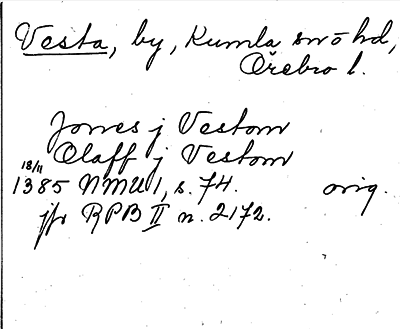 Vesta, by, Kumla sn o hd,
Örebro l.
Jones j Vestom
Olaff j Vestom
18/11
1385 NMU 1, s. 74. orig.
jfr RPB II n. 2172.